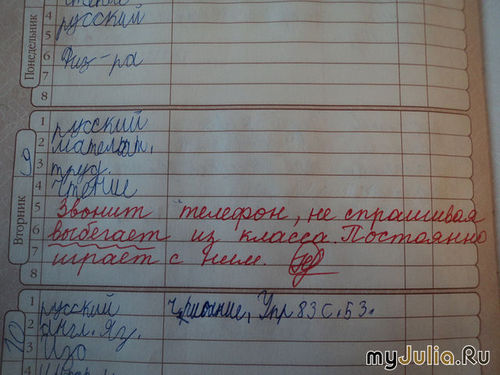 4 русский
5
6 Физ-ра
7
8
Понедельник
1 русский
2 матем.
3 труд.
4 чтение
5 Звонит телефон, не спрашивая
6 выбегает из класса. Постоянно
7 играет с ним.
8
Вторник
9
1 русский Упр 83 с. 53.
2 англ. яз.
3 Изо
4
10
myJulia.Ru